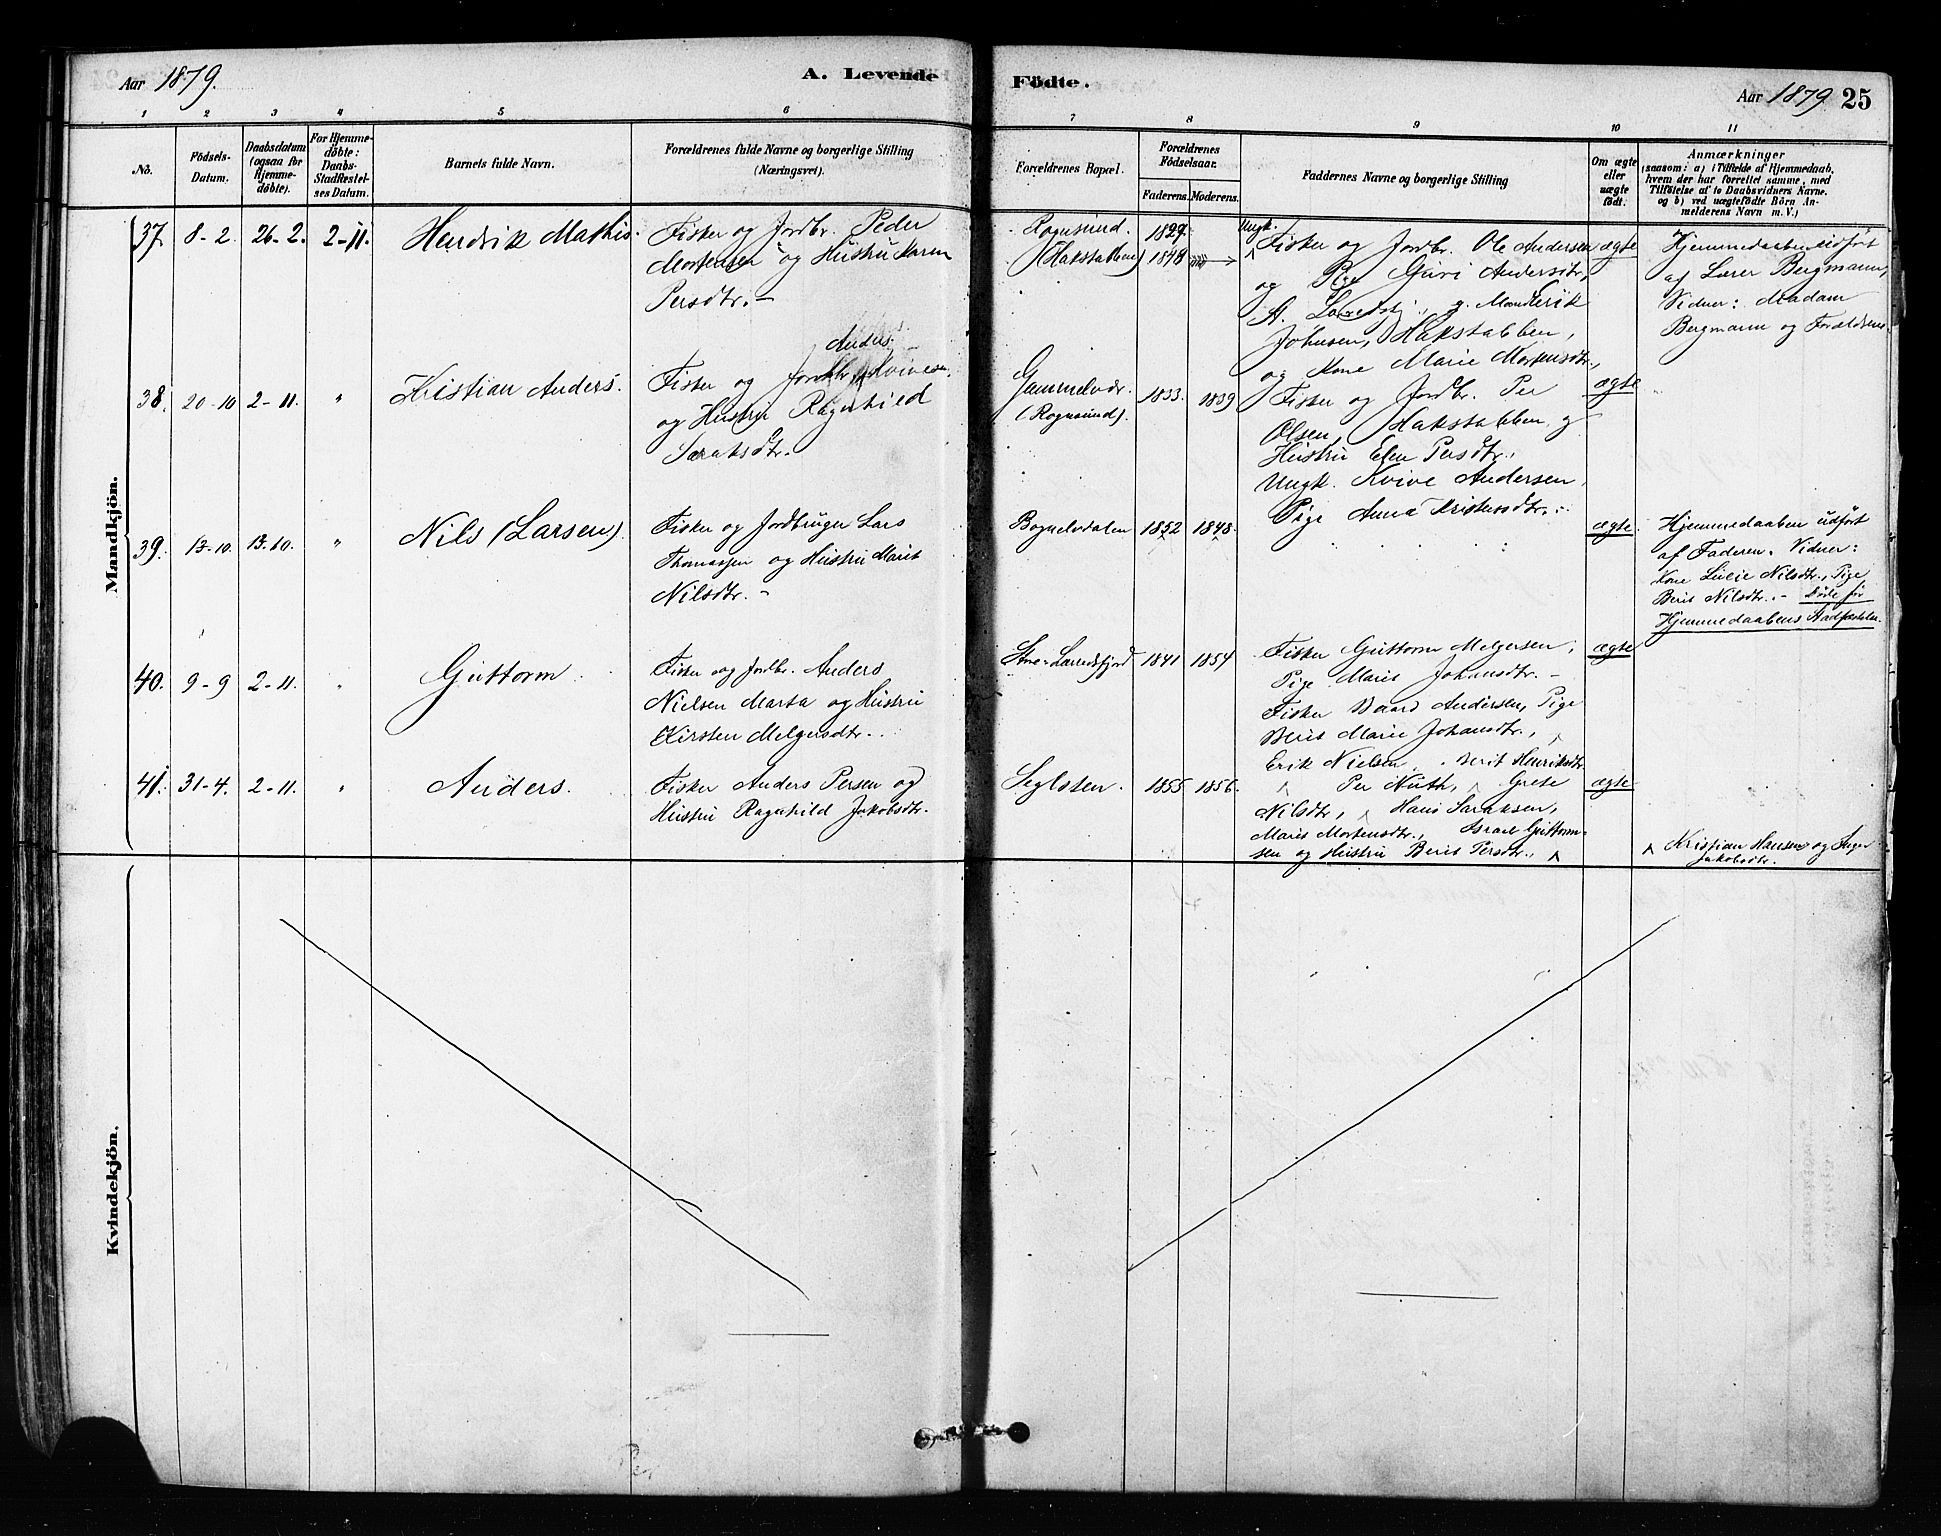 Aar 1879.
A. Levende Födte.
Aar 1879 25
1 2 3 4 5 6 7 8 9 10 11
No.
Födsels-Datum.
Daabsdatum (ogsaa for Hjemmedøbte).
For Hjemmedøbte: Daabs-Stadfæstelses Datum.
Barnets fulde Navn.
Forældrenes fulde Navne og borgerlige Stilling (Næringsvei).
Forældrenes Bopæl.
Forældrenes Födselsaar.
Faderens. Moderens.
Faddernes Navne og borgerlige Stilling
Om ægte eller uægte födt.
Anmærkninger
(saasom: a) i Tilfælde af Hjemmedaab,
hvem der har forrettet samme, med
Tilföielse af to Daabsvidners Navne.
og b) ved uægtefödte Börn An-
melderens Navn m.V.)
Mandkjön.
37. 8-2. 26-2. 2-11. Hendrik Mathis.
Fisker og Jordbr. Peder
Mortensen og Hustru Karen
Persdtr. -
Rognsund.
(Hakstabben)
1827. 1848
Ungk.
Fisker og Jordbr. Ole Andersen
og Pige Guri Andersdtr,
Johnsen, Hakstabben,
og Kone Marie Mortensdtr.,
ægte
Hjemmedaaben udført
af Lærer Bergmann,
Vidner: Madam
Bergmann og Forældrene
38. 20-10 2-11. " Kristian Anders.
Anders
Fisker og Jordbr.
og Hustru Ragnhild
Saraksdtr.
Gammelvær.
(Rognsund).
1833. 1839
Fisker og Jordbr. Per
Olsen, Hakstabben og
Hustru Elen Persdtr.,
Ungk. Kvive Andersen,
Pige Anna Kristensdtr.
ægte
39. 13-10. 13-10. " Nils (Larsen).
Fisker og Jordbruger Lars
Thomassen og Hustru Marit
Nilsdtr. -
Bognelvdalen 1852 1848.
ægte.
Hjemmedaaben udført
af Faderen. Vidner:
Kone Lucie Nilsdtr., Pige
Berit Nilsdtr. - Døde før
Hjemmedaabens Stadfæstelse.
40. 9-9 2-11. " Guttorm
Fisker og Jordbr. Anders
Nielsen Marta og Hustru
Kirsten Melgersdtr.
Store-Lerredsfjord 1841 1854
Fisker Guttorm Melgersen,
Pige Marit Johansdtr. -
Fisker Baard Andersen, Pige
Berit Marie Johansdtr.,
Erik Nielsen, Berit Henriksdtr.
ægte
41. 31-4. 2-11. " Anders.
Fisker Anders Persen og
Hustru Ragnhild Jakobsdtr.
Seglsten. 1855 1856.
Per Nuth, Grete
Nilsdtr, Hans Saraksen,
Marit Mortensdtr., Israel Guttorm-
sen og Hustru Berit Persdtr.,
ægte
Kristian Hansen og Inger
Jakobsdtr.
Kvindekjön.
Per